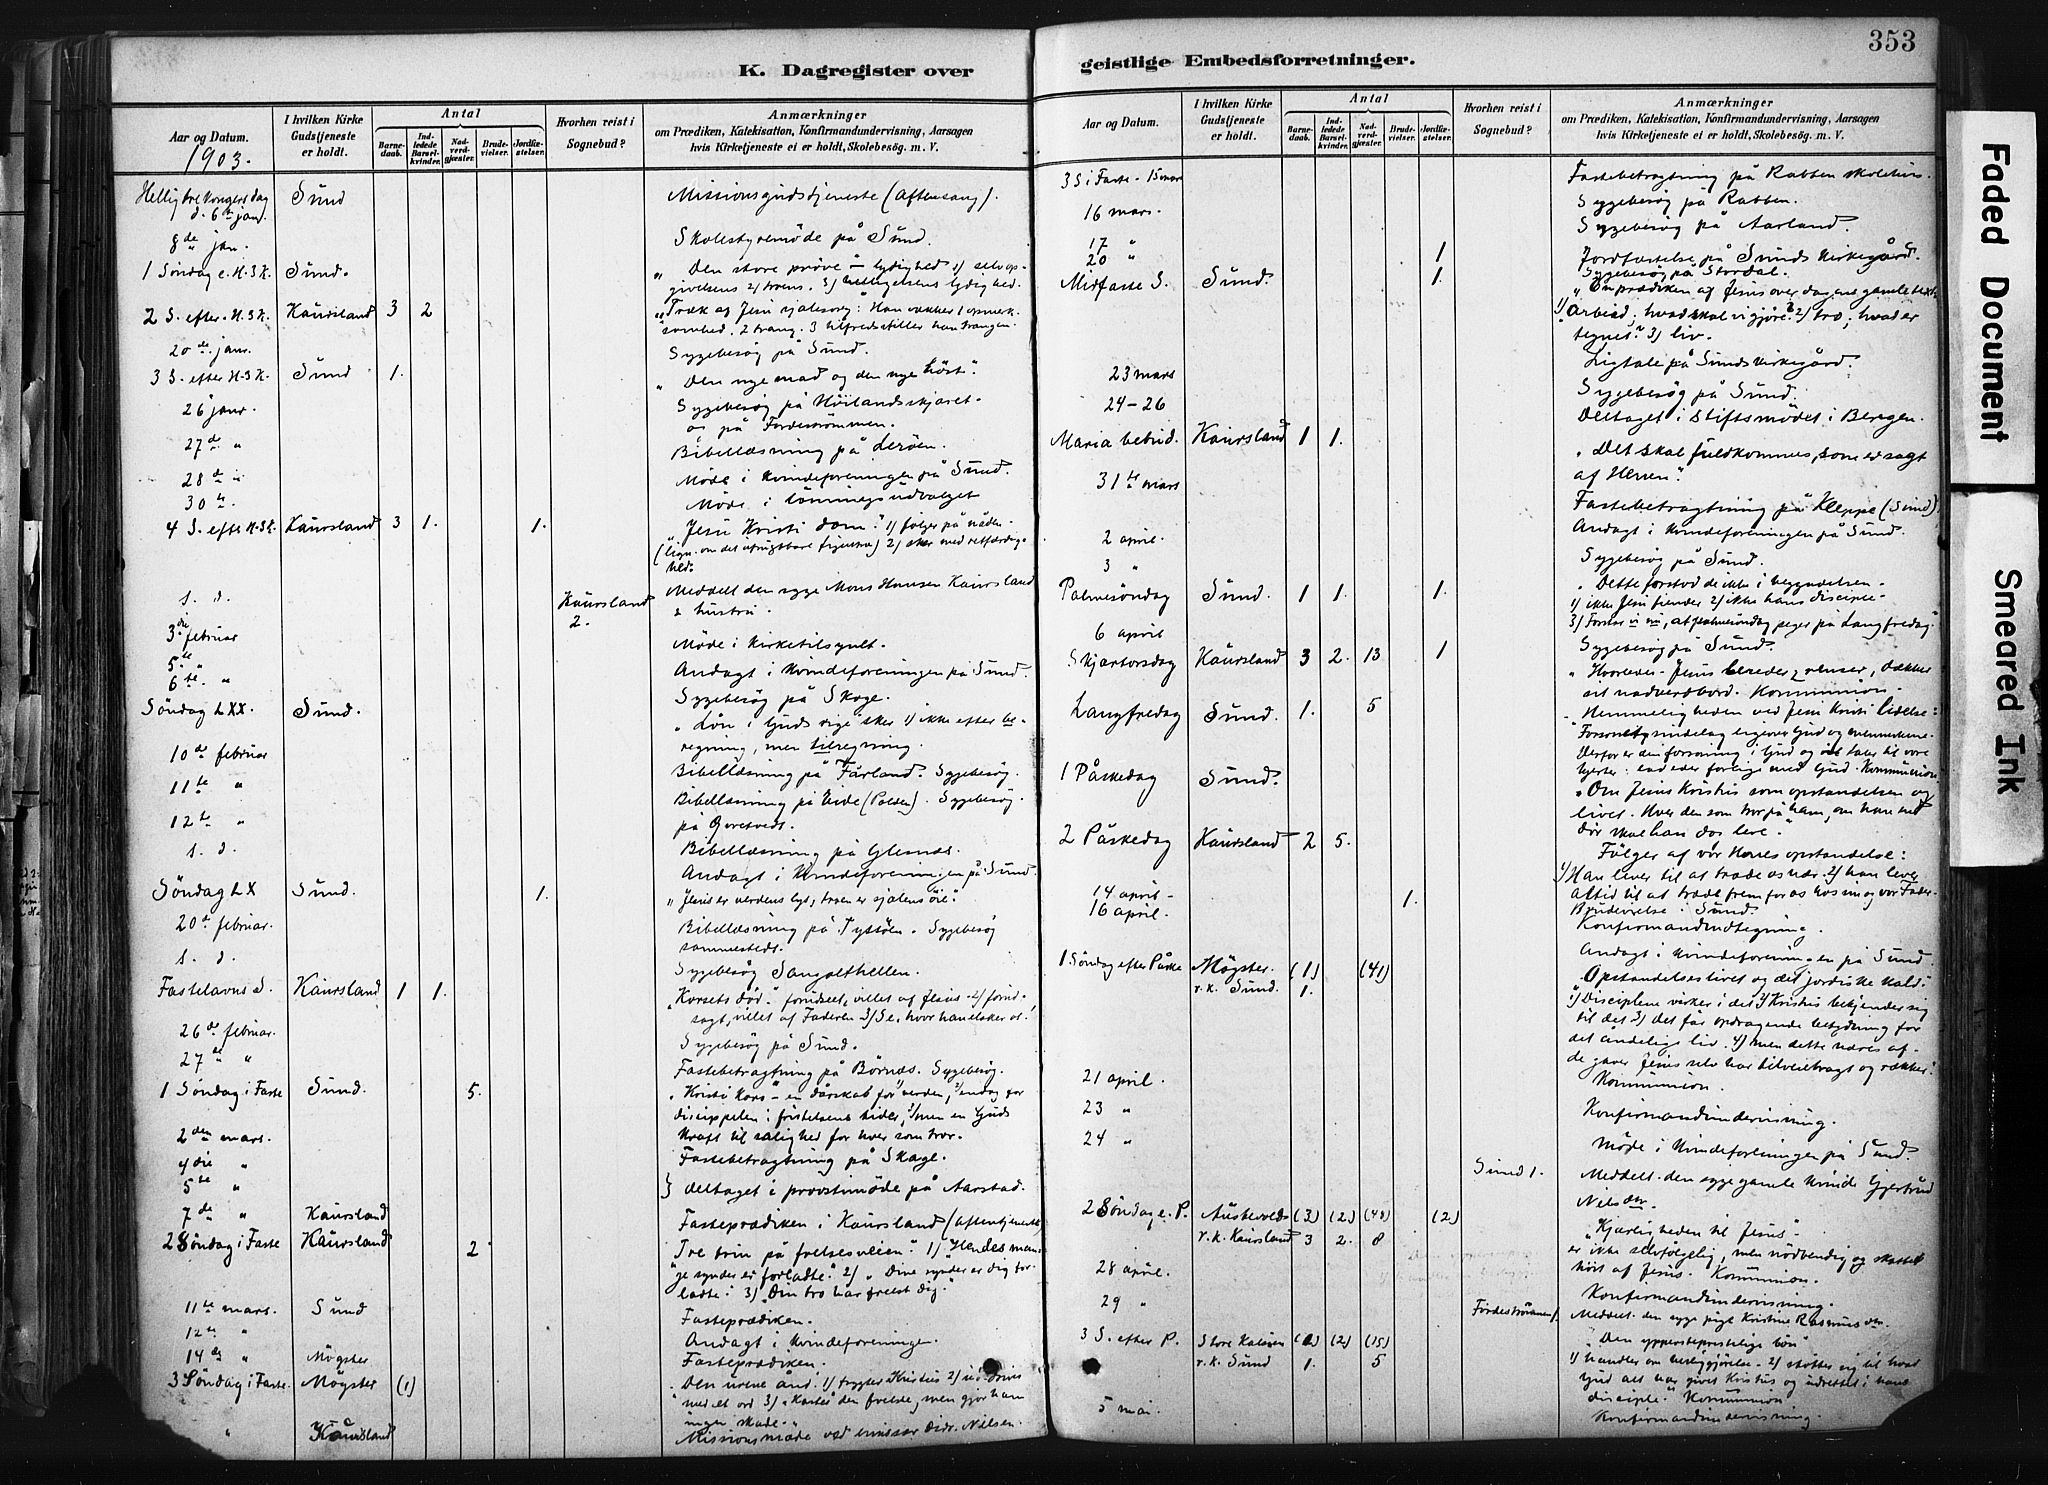 353
K. Dagregister over geistlige Embedsforretninger.
Aar og Datum.
1903.
I hvilken Kirke Gudstjeneste er holdt.
Antal
Barnedaab.
Indledede Barselkvinder.
Nadverdgjæster.
Brudevielser.
Jordfæstelser.
Hvorhen reist i Sognebud?
Anmærkninger
om Prædiken, Katekisation, Konfirmandundervisning, Aarsagen
hvis Kirketjeneste ei er holdt, Skolebesög. m. V.
Hellig tre Kongers dag Sund Missionsgudstjeneste (aftensang).
d. 6te jan.
8de jan. Skolestyremöde på Sund.
1 Söndag e. H.3.K. Sund. „Den store pröve" – lydighed 1) selvop-
givelsens 2) troens. 3) lydighed.
2 S. efter H.3.K. Kaursland 3 2 „Træk af Jesu sjælesorg": Han vækker 1 opmærk-
somhed. 2 trang. 3 tilfredsstiller han trangen.
20de janr. Sygebesög på Sund.
3 S. efter H.3.K. Sund 1. „Den nye mad og den nye höst".
26 janr. Sygebesög på Höilandskjæret.
og på Fordeströmmen.
27de " Bibellæsning på Leröen.
28de " Möde i Kvindeforeningen på Sund.
30te. Möde i lönningsudvalget
4 S. eft. H.3.K. Kaursland 3 1. 1. „Jesu Kristi dom": 1) fölger på nåden.
(lign. om det ufrugtbare figentræ) 2) sker med retfærdig-
hed.
s. d. Kaursland 2. Meddelt den syge Mons Hansen Kaursland
& hustru.
3die februar Möde i Kirketilsynet.
5te " Andagt i Kvindeforeningen på Sund.
6te " Sygebesög på Skoge.
Söndag LXX. Sund. „Lön i Guds rige sker 1) ikke efter be-
regning, men tilregning.
10de februar Bibellæsning på Færland. Sygebesög.
11te " Bibellæsning på Eide (Polden). Sygebesög.
på
12te " Bibellæsning på Glesnæs.
s. d. Andagt i Kvindeforeningen på Sund.
Söndag LX Sund. 1. „Jesus er verdens lys, troen er sjælens öie".
20de februar. Bibellæsning på Tyssöen. Sygebesög
sammesteds.
s. d. Sygebesög
Fastelavns S. Kaursland 1 1. „Korsets död": forudseet, villet af Jesus. 2) forud-
sagt, villet af Faderen 3) Se, hvor han elsker os!
26de februar. Sygebesög på Sund.
27de " Fastebetragtning på Börnæs. Sygebesög.
1 Söndag i Faste Sund. 5. „Kristi Kors" – en dårskab for verden, 2) endog for
disciplen i fristelsens tider, 3) men en Guds
Kraft til salighed for hver som tror.
2den mars. Fastebetragtning på Skage.
4die "
5te " } deltaget i provstimöde på Aarstad.
7de " Kaursland Fasteprædiken i Kaursland (aftentjeneste)
2 Söndag i Faste Kaursland 2 Tre trin på frelsesveien": 1) „Hendes man-
ge synder er forladte". 2) „Dine synder er dig for-
ladte". 3) „Din tro har frelst dig".
11te mars. Sund Fasteprædiken.
12te " Andagt i Kvindeforeningen.
14de " Mögster Fasteprædiken.
3 Söndag i Faste. Mögster (1) „Den urene ånd": 1) frygter Kristus 2) uddrives
med et ord 3) „Kastede den frelste, men gjör ham
ingen skade".
" Kaursland Missionsmöde ved emissær Nilsen.
Aar og Datum.
I hvilken Kirke Gudstjeneste er holdt.
Antal
Barnedaab.
Indledede Barselkvinder.
Nadverdgjæster.
Brudevielser.
Jordfæstelser.
Hvorhen reist i Sognebud?
Anmærkninger
om Prædiken, Katekisation, Konfirmandundervisning, Aarsagen
hvis Kirketjeneste ei er holdt, Skolebesög. m. V.
3 S i Faste – 15 mars Fastebetragtning på Rabben skolehus.
16 mars. Sygebesög på Rabben.
Sygebesög på Aarland.
17 " 1 Jordfæstelse på Sunds Kirkegård.
20 " Sygebesög på Stordal.
Midfaste S. Sund. 1. „En prædiken af Jesus over dagens gamle text":
1) Arbeid; hvad skal vi gjöre? 2) tro; hvad er
tegnet? 3) liv.
23 mars Ligtale på Sunds Kirkegård.
Sygebesög på Sund.
24–26 Deltaget i Stiftsmödet i Bergen.
Maria bebud. Kaursland 1 1. „Det skal fuldkommes, som er sagt
af Herren".
31te mars Fastebetragtning på Kleppe (Sund).
2 april. Andagt i Kvindeforeningen på Sund.
3 " Sygebesög på Sund.
Palmesöndag Sund. 1 1. 1. „Dette forstod de ikke i begyndelsen.
1) ikke Jesu fiender 2) ikke hans disciple.
3) Forstår vi nu, at palmesöndag peger på Langfredag.
6 april Sygebesög på Sund.
Skjærtorsdag Kaursland 3 2. 13 1 „Hvorledes Jesus bereder, renser, dækker
sit nadverdbord. Kommunion.
Langfredag Sund. 1. 5 Hemmeligheden ved Jesu Kristi lidelse:
Forsoner Gud og menneskene.
Derfor er den forsoning i Gud og taler til vore
hjerter: lad eder forlige med Gud. Kommunion.
1 Påskedag Sund. „Om Jesus Kristus som opstandelsen og
livet. Hver den som tror på ham, om han end
dör skal han dog leve".
2 Påskedag Kaursland 2 5. Fölger af vor Herres opstandelse:
1) Han lever til at træde os nær. 2) han lever
altid til at træde frem for os hos sin og vor Fader.
14 april. 1. Brudevielse i Sund.
16 april. Konfirmandindtegning.
Andagt i Kvindeforeningen på Sund.
1. Söndag efter Påske Mögster. (1) (41) „Opstandelseslivet og det jordiske kald":
r.k. Sund. 1. 1) Disciplene virker i det 2) Kristus bekjender sig
til det 3) det får opdragende betydning for
det åndelige liv. 4) men dette næres af
de gaver Jesus selv har tilveiebragt og rækker!
Kommunion.
21 april. Konfirmandundervisning.
23 " Möde i Kvindeforeningen på Sund.
24 " Sund 1. Meddelt den syge gamle Kvinde Gjertrud
Nilsdtr.
2 Söndag e. P. Austevolds (3) (2) (48) (2) „Kjærligheden til Jesus"
r.k. Kaursland 3 2. 8 er ikke selvfölgelig, men nödvendig og skattet
höit af Jesus. Kommunion.
28 april. Konfirmandundervisning.
29 " Fordeströmmen 1. Meddelt den syge pige Kristine Rasmusdtr.
3 S. efter P. Store Kalsöen (2) (15) „Den ypperstepræstelige bön"
r.k. Sund 1. 5 1) handler om herliggjörelse. 2) støtter sig til hvad
Gud alt har givet Kristus og udrettet i hans
disciple". Kommunion.
5 mai. Konfirmandundervisning.
Faded Document
Smeared Ink